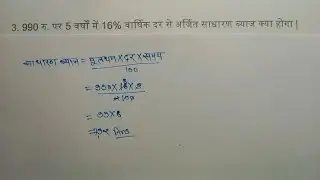 3. 990 रु. पर 5 वर्षों में 16% वार्षिक दर से अर्जित साधारण ब्याज क्या होगा |
साधारण ब्याज = मूलधन × दर × समय
100
= 990 × 16 × 5
100
= 99 × 8
= 792 Ans